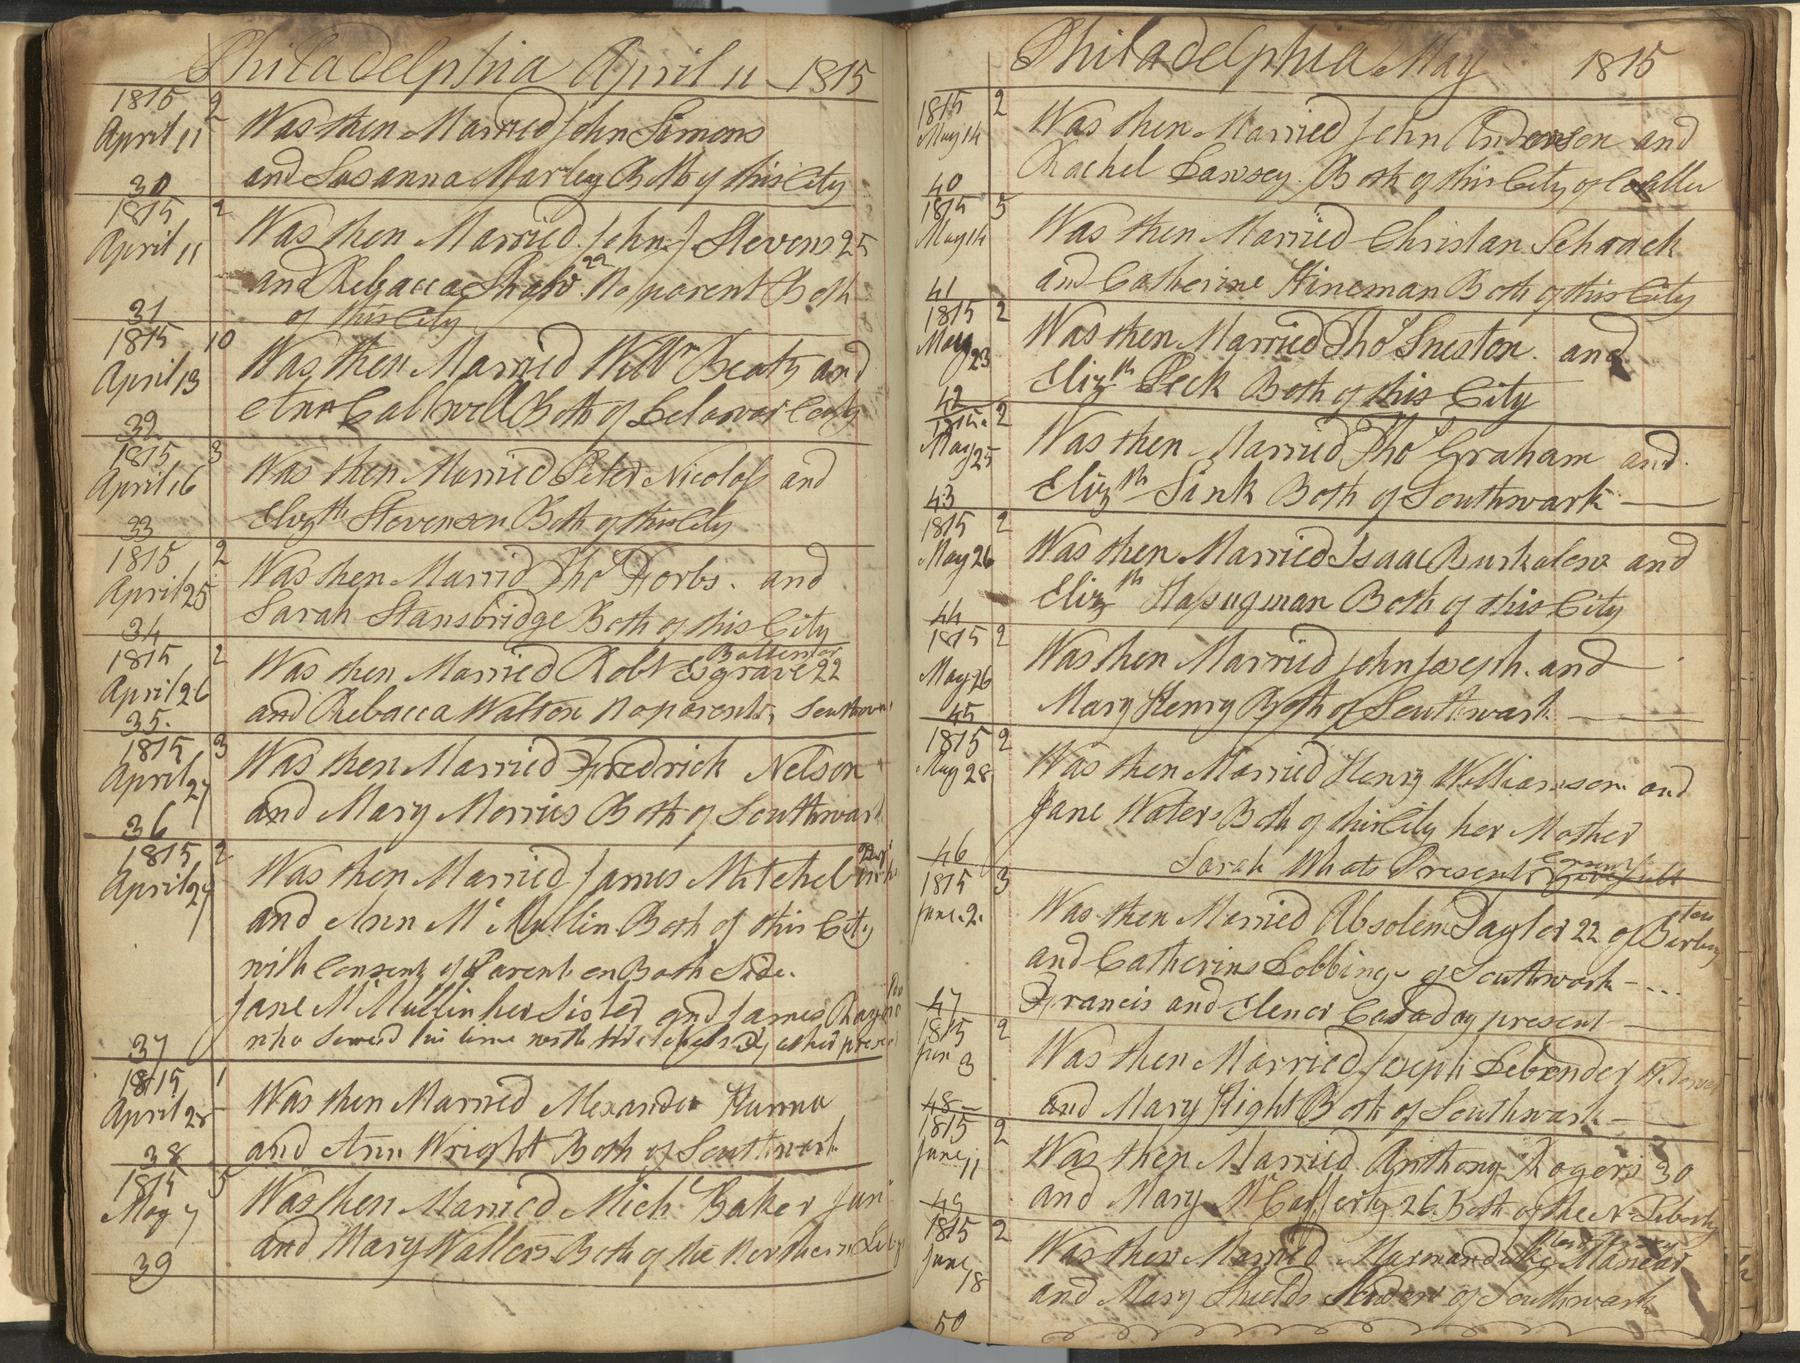 Philadelphia April 11 1815
1815 2
April 11 Was then Married John Simons
and Susanna Marley Both of this City
30
1815 2
April 11 Was then Married John J Stevens 25
and Rebacca Shaw 22 No parent Both
of this City
31
1815 10
April 13 Was then Married Willm Beaty and
Both of Delawar
32
1815 3
April 16 Was then Married Peter Nicolos and
Elizth Stevenson Both of this City
33
1815 2
April 25 Was then Marrid Thos Forbs. and
Sarah Stansbridge Both of this City
34
1815 2
April 26 Was then Married Robt Esgrave 22
and Rebacca Walton No parents,
35.
1815 3
April 27 Was then Married Fredrick Nelson
and Mary Morris Both of Southwark
36
1815 2
April 27 Was then Married James Mitchel
and Ann Mc Mullin Both of this City
with Consent of Parent on Both Side.
Jane McMullin her Sister and James
who Served his time with
37
1815 1
April 28 Was then Married Alexander Hanna
and Ann Wright Both of Southwark
38
1815 5
May 7 Was then Married Mich Baker Jun
and Mary Walters Both of the Northern Liby
39
Philadelphia May 1815
1815 2
May 14 Was then Married John Anderson and
Rachel Dawsey. Both of this City of
40
1815 5
May 14 Was then Married Christan Schraack
and Catherine Hineman Both of this City
41
1815 2
May 23 Was then Married Thos Sneston. and
Elizth Peck Both of this City
42
1815. 2
May 25 Was then Married Thos Graham and
Elizth Sink Both of Southwark
43
1815 2
May 26 Was then Married Isaac Burkalow and
Elizth Hapugman Both of this City
44
1815 2
May 26 Was then Married John Joseph. and
Mary Henry Both of Southwark
45
1815 2
May 28 Was then Married Henry Williamson and
Jane Waters Both of this City her Mother
46
Sarah Whats Present
1815 3
June. 2. Was then Married Absolem Taylor 22 of
and Catherine Lobbinge of Southwark
47 Francis and Elenor Casaday present
1815 2
Jun 3 Was then Married Joseph Lebender
and Mary Hight Both of Southwark
48
1815 2
June 11 Was then Married Anthony Rogers 30
and Mary McCafferty 26. Both of the N. Liberty
49
1815 2
June 18 Was then Married Marmanduke
and Mary Shields of Southwark
50